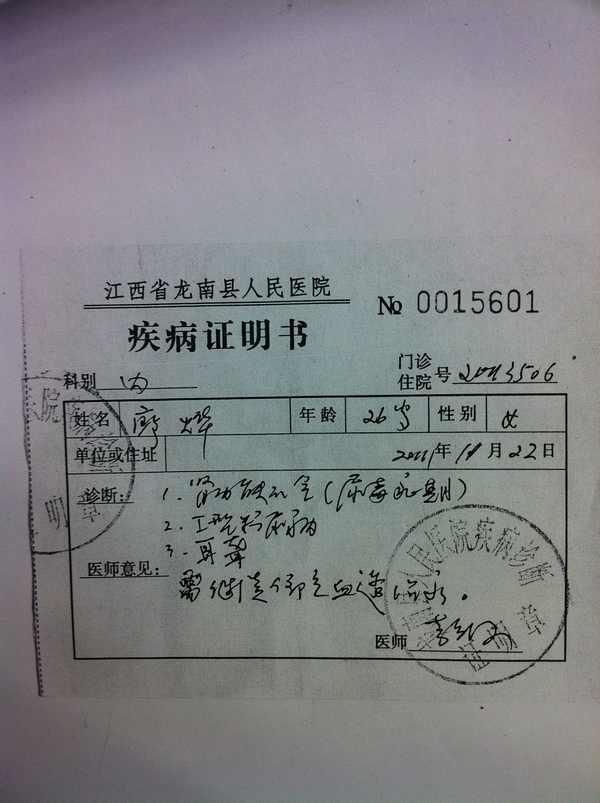 江西省龙南县人民医院
№ 0015601
疾病证明书
科别 内
门诊
住院 号 2013506
姓名 廖 年龄 26岁 性别 女
单位或住址 2011年11月22日
诊断: 1. 肾功能不全(尿毒症期)
2. 糖尿病
3. 耳聋
医师意见:
需继续 血透
医师
人民医院疾病诊断
证明章